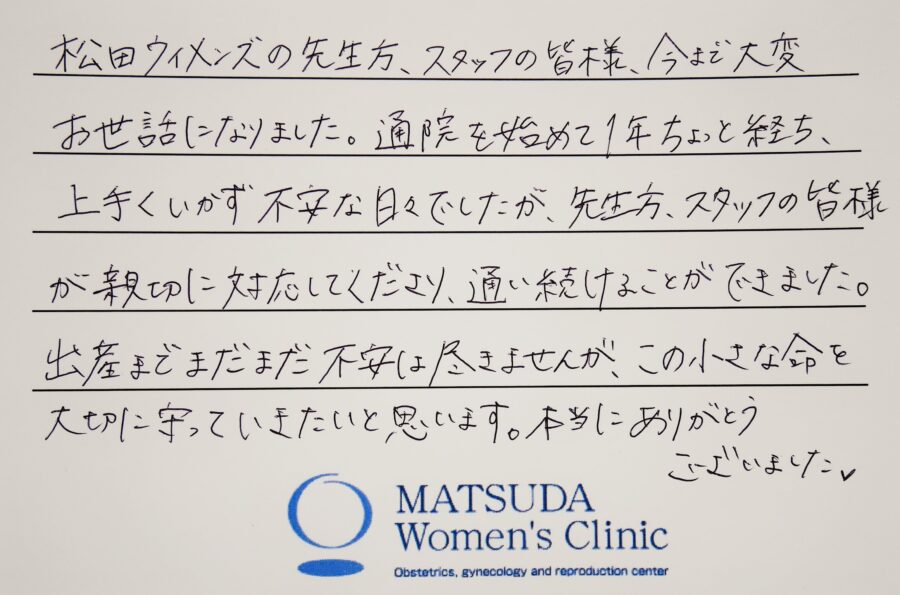 松田ウィメンズの先生方、スタッフの皆様、今まで大変
お世話になりました。通院を始めて1年ちょっと経ち、
上手くいかず不安な日々でしたが、先生方、スタッフの皆様
が親切に対応してくださり、通い続けることができました。
出産までまだまだ不安は尽きませんが、この小さな命を
大切に守っていきたいと思います。本当にありがとう
ございました
MATSUDA
Women's Clinic
Obstetrics, gynecology and reproduction center